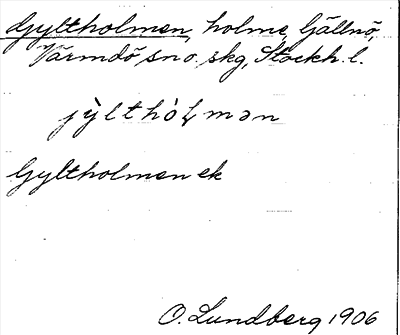 Gyltholmen, holme, Gällnö,
Värmdö, sn o. skg, Stockh. l.
jỳlthòɫmən
Gyltholmen ek
O. Lundberg 1906